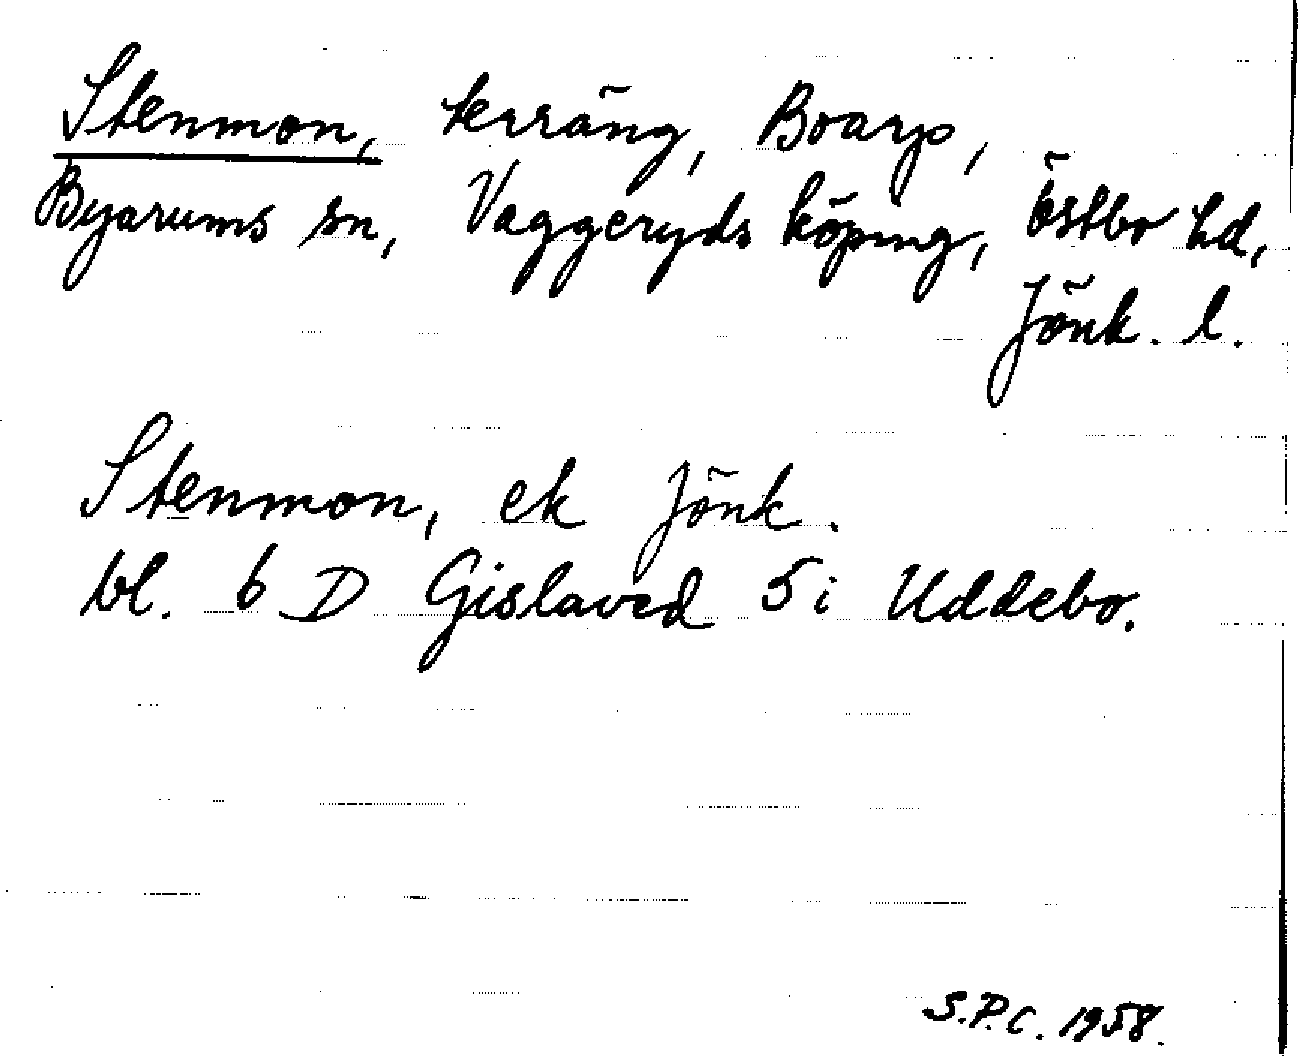 Stenmon, terräng, Boarp,
Byarums sn, Vaggeryds köping, Östbo hd,
Jönk. l.
Stenmon, ek Jönk.
bl. 6 D Gislaved 5 i Uddebo.
S.P.C. 1958.